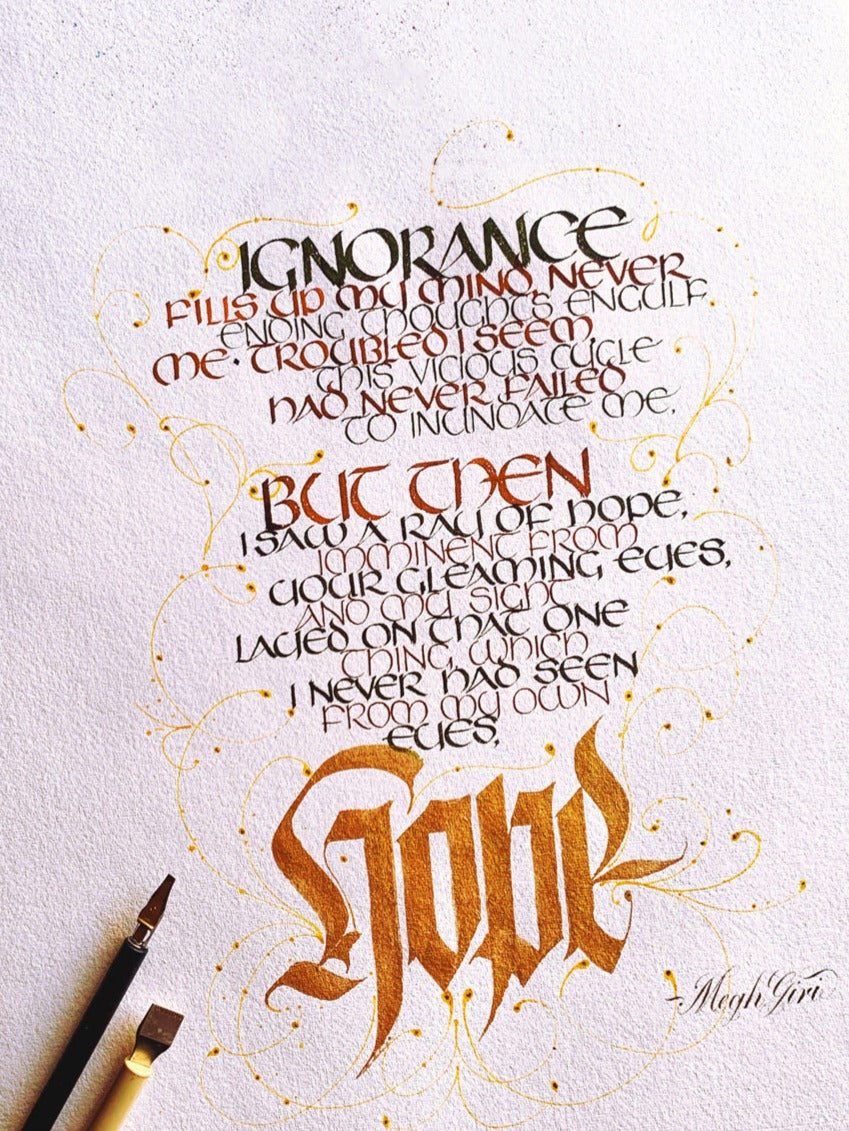 IGNORANCE
FILLS UP MY MIND, NEVER
ENDING THOUGHTS ENGULF
ME. TROUBLED I SEEM
THIS VICIOUS CYCLE
HAD NEVER FAILED
TO INUNDATE ME.
BUT THEN
I SAW A RAY OF HOPE,
IMMINENT FROM
YOUR GLEAMING EYES,
AND MY SIGHT
LAYED ON THAT ONE
THING, WHICH
I NEVER HAD SEEN
FROM MY OWN
EYES,
Hope
-Megh Giri